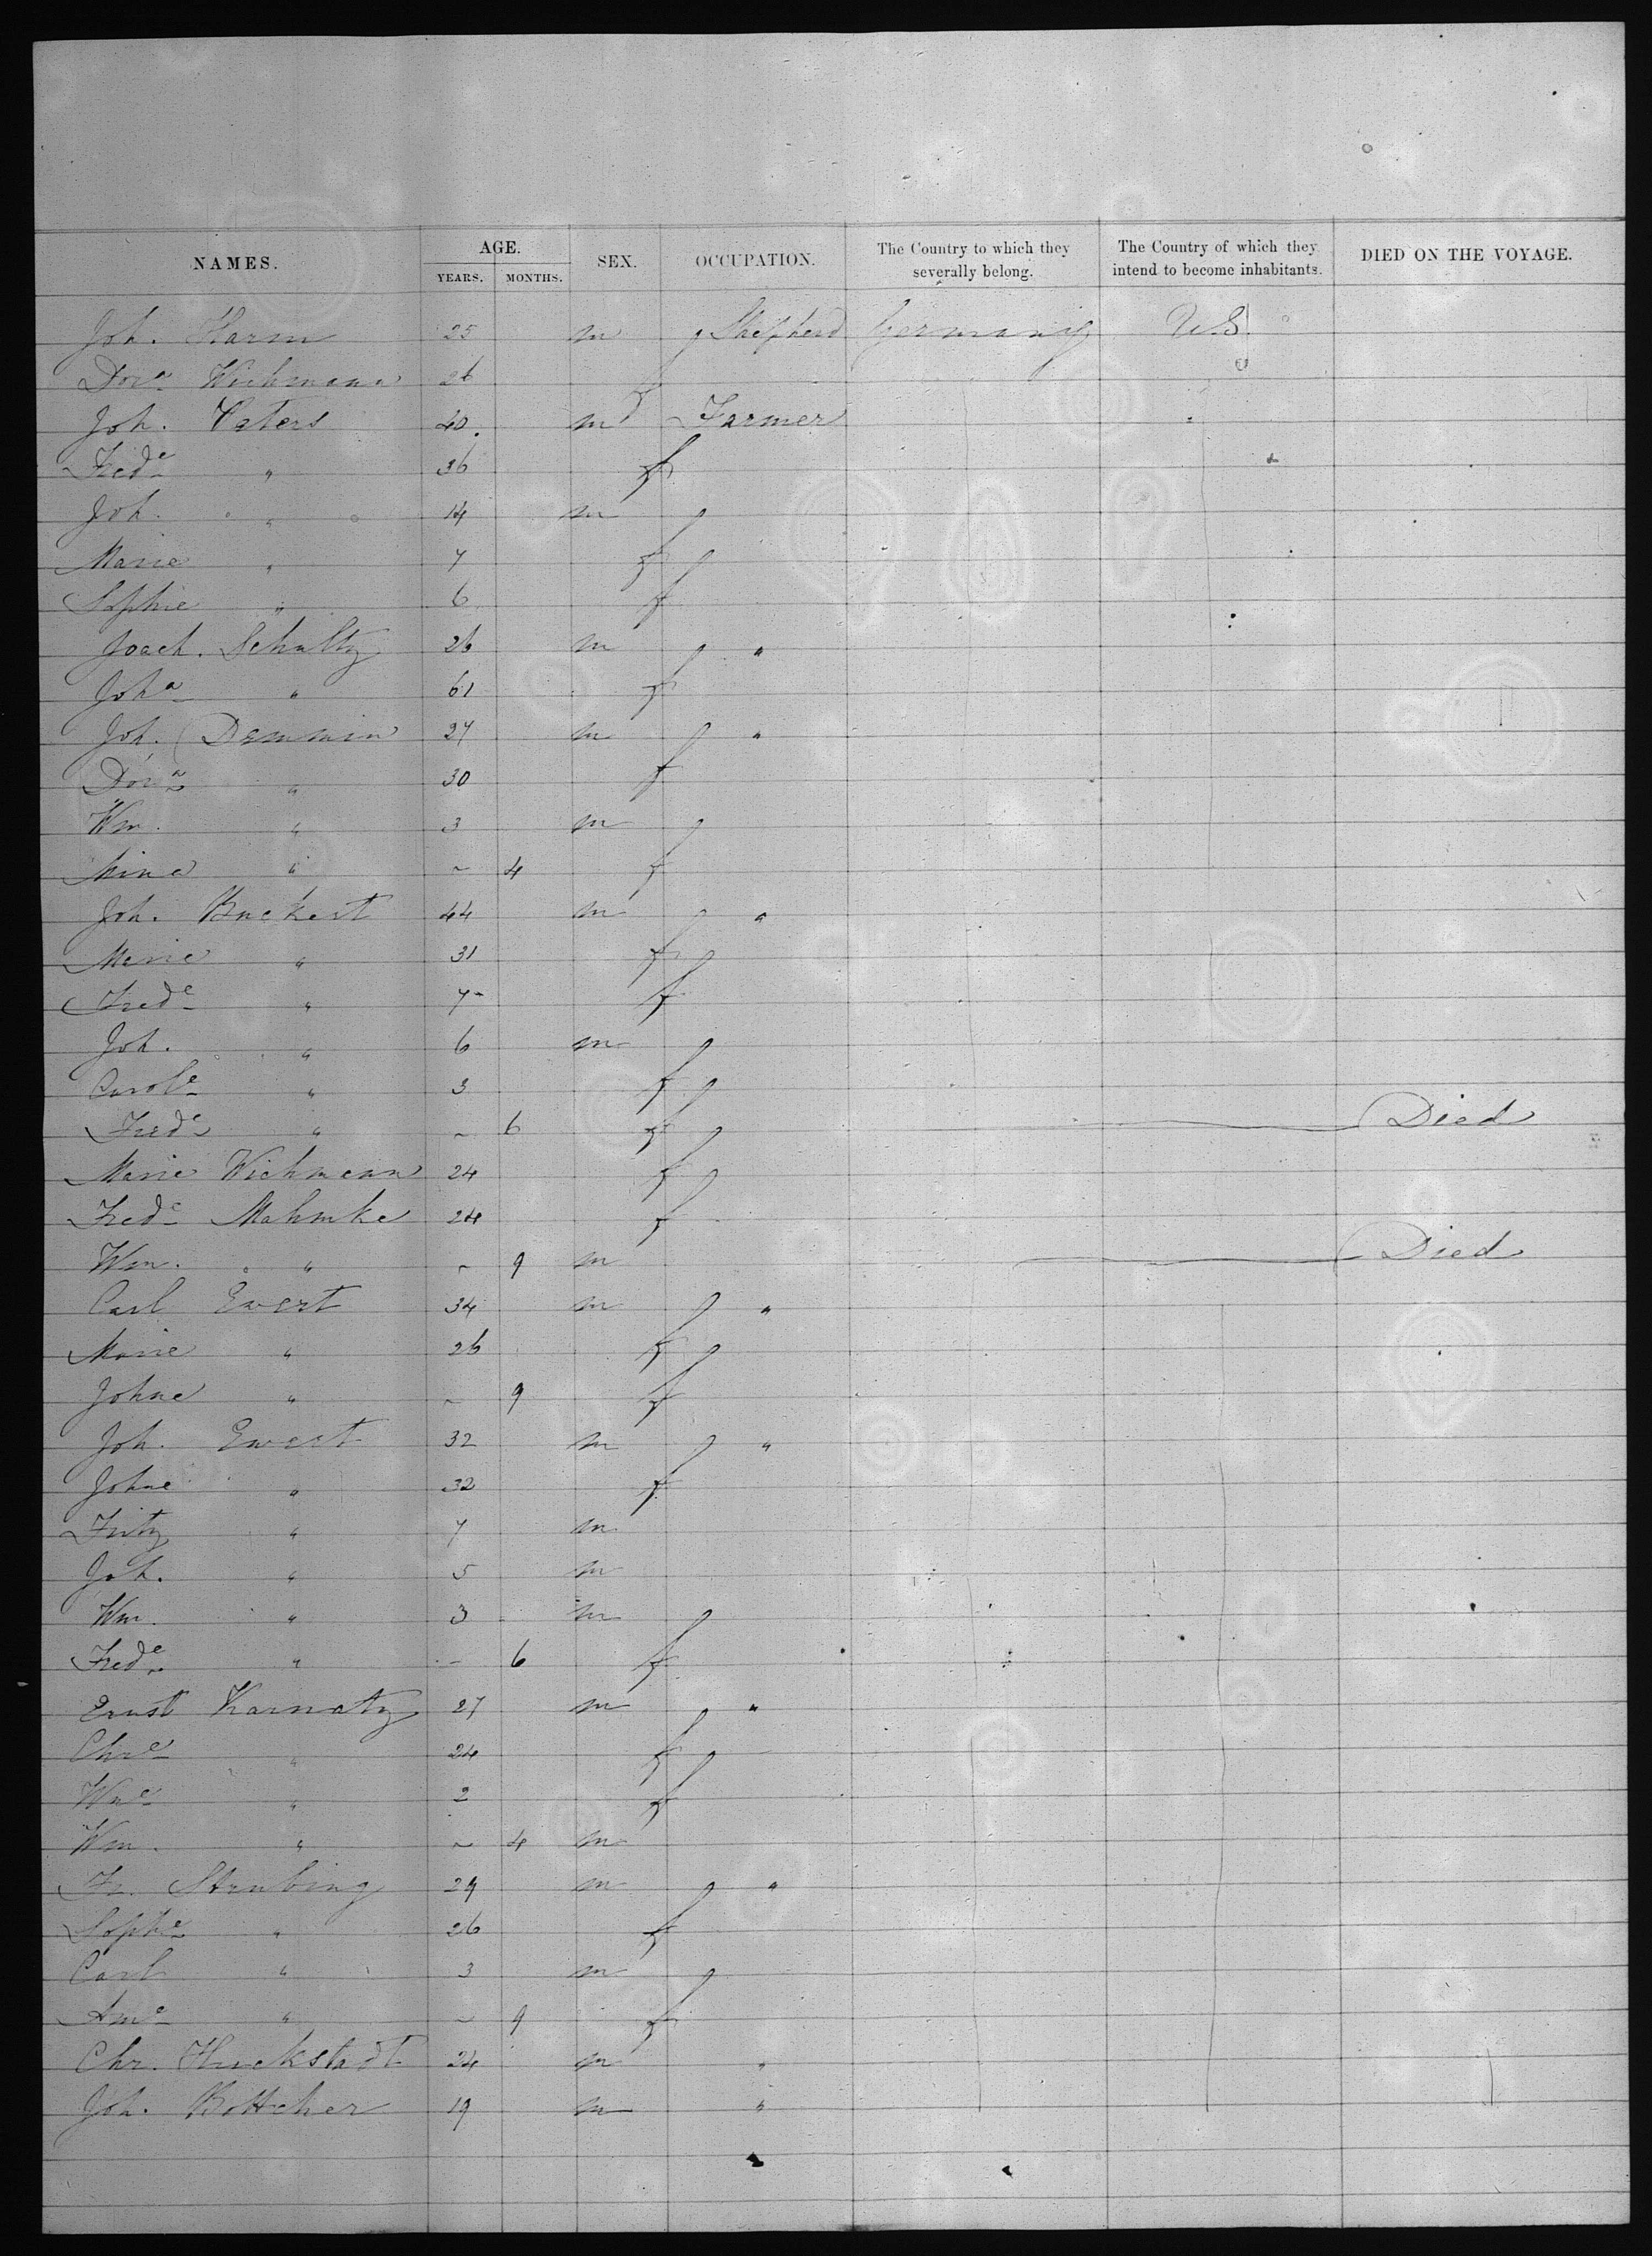 NAMES. AGE. YEARS. MONTHS. SEX. OCCUPATION. The Country to which they severally belong. The Country of which they intend to become inhabitants. DIED ON THE VOYAGE.
Joh. Harm 25 m Shepherd Germany U.S.
Dora Wichmann 26 f
Joh. Vaters 40 m Farmer
Frede " 36 f
Joh. " 14 m
Marie " 7 f
Sophie " 6 f
Joach. Schultz 26 m "
Joha " 61 f
Joh. Demmin 27 m "
Dora " 30 f
Wm. " 3 m
Mina " ~ 4 f
Joh. Buckert 44 m "
Marie " 31 f
Frede " 7 f
Joh. " 6 m
Carole " 3 f
Frede " ~ 6 f Died
Marie Wichmann 24 f
Frede Mahmke 24 f
Wm. " ~ 9 m Died
Carl Ewert 34 m "
Marie " 26 f
Johne " ~ 9 f
Joh. Ewert 32 m "
Johne " 32 f
Fritz " 7 m
Joh. " 5 m
Wm. " 3 m
Frede " ~ 6 f
Ernst Karnatz 27 m "
Chre " 24 f
Wne " 2 f
Wm. " ~ 4 m
Fr. Strubing 29 m "
Sophe " 26 f
Carl " 3 m
Ame " ~ 9 f
Chr. Huckstadt 24 m "
Joh. Bottcher 19 m "